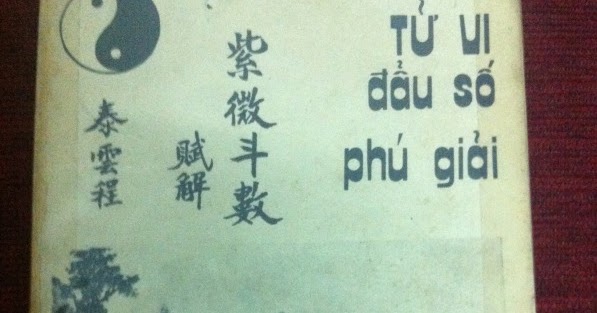 TỬ VI
đẩu số
phú giải
紫微斗數
賦解
泰雲程